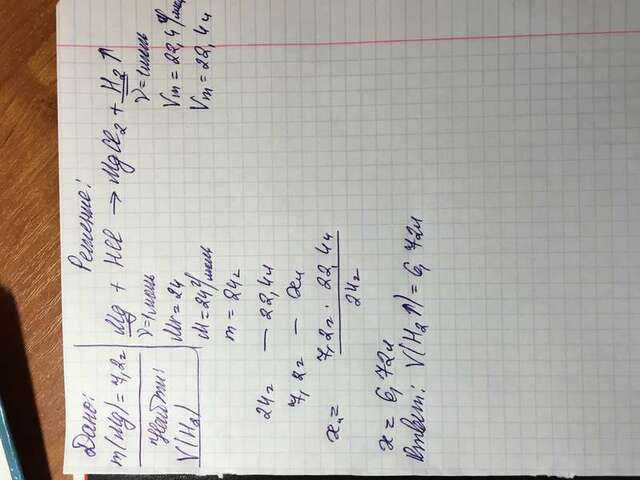 Дано: Решение:
m(Mg) = 7,2г Mg + HCl → MgCl2 + H2↑
Найти: ν=1моль ν=1моль
V(H2) Mr = 24 Vm = 22,4 л/моль
M = 24 г/моль Vm = 22,4л
m = 24г
24г — 22,4л
7,2г — xл
xл = 7,2г · 22,4л
24г
x = 6,72л
Ответ: V(H2↑) = 6,72л